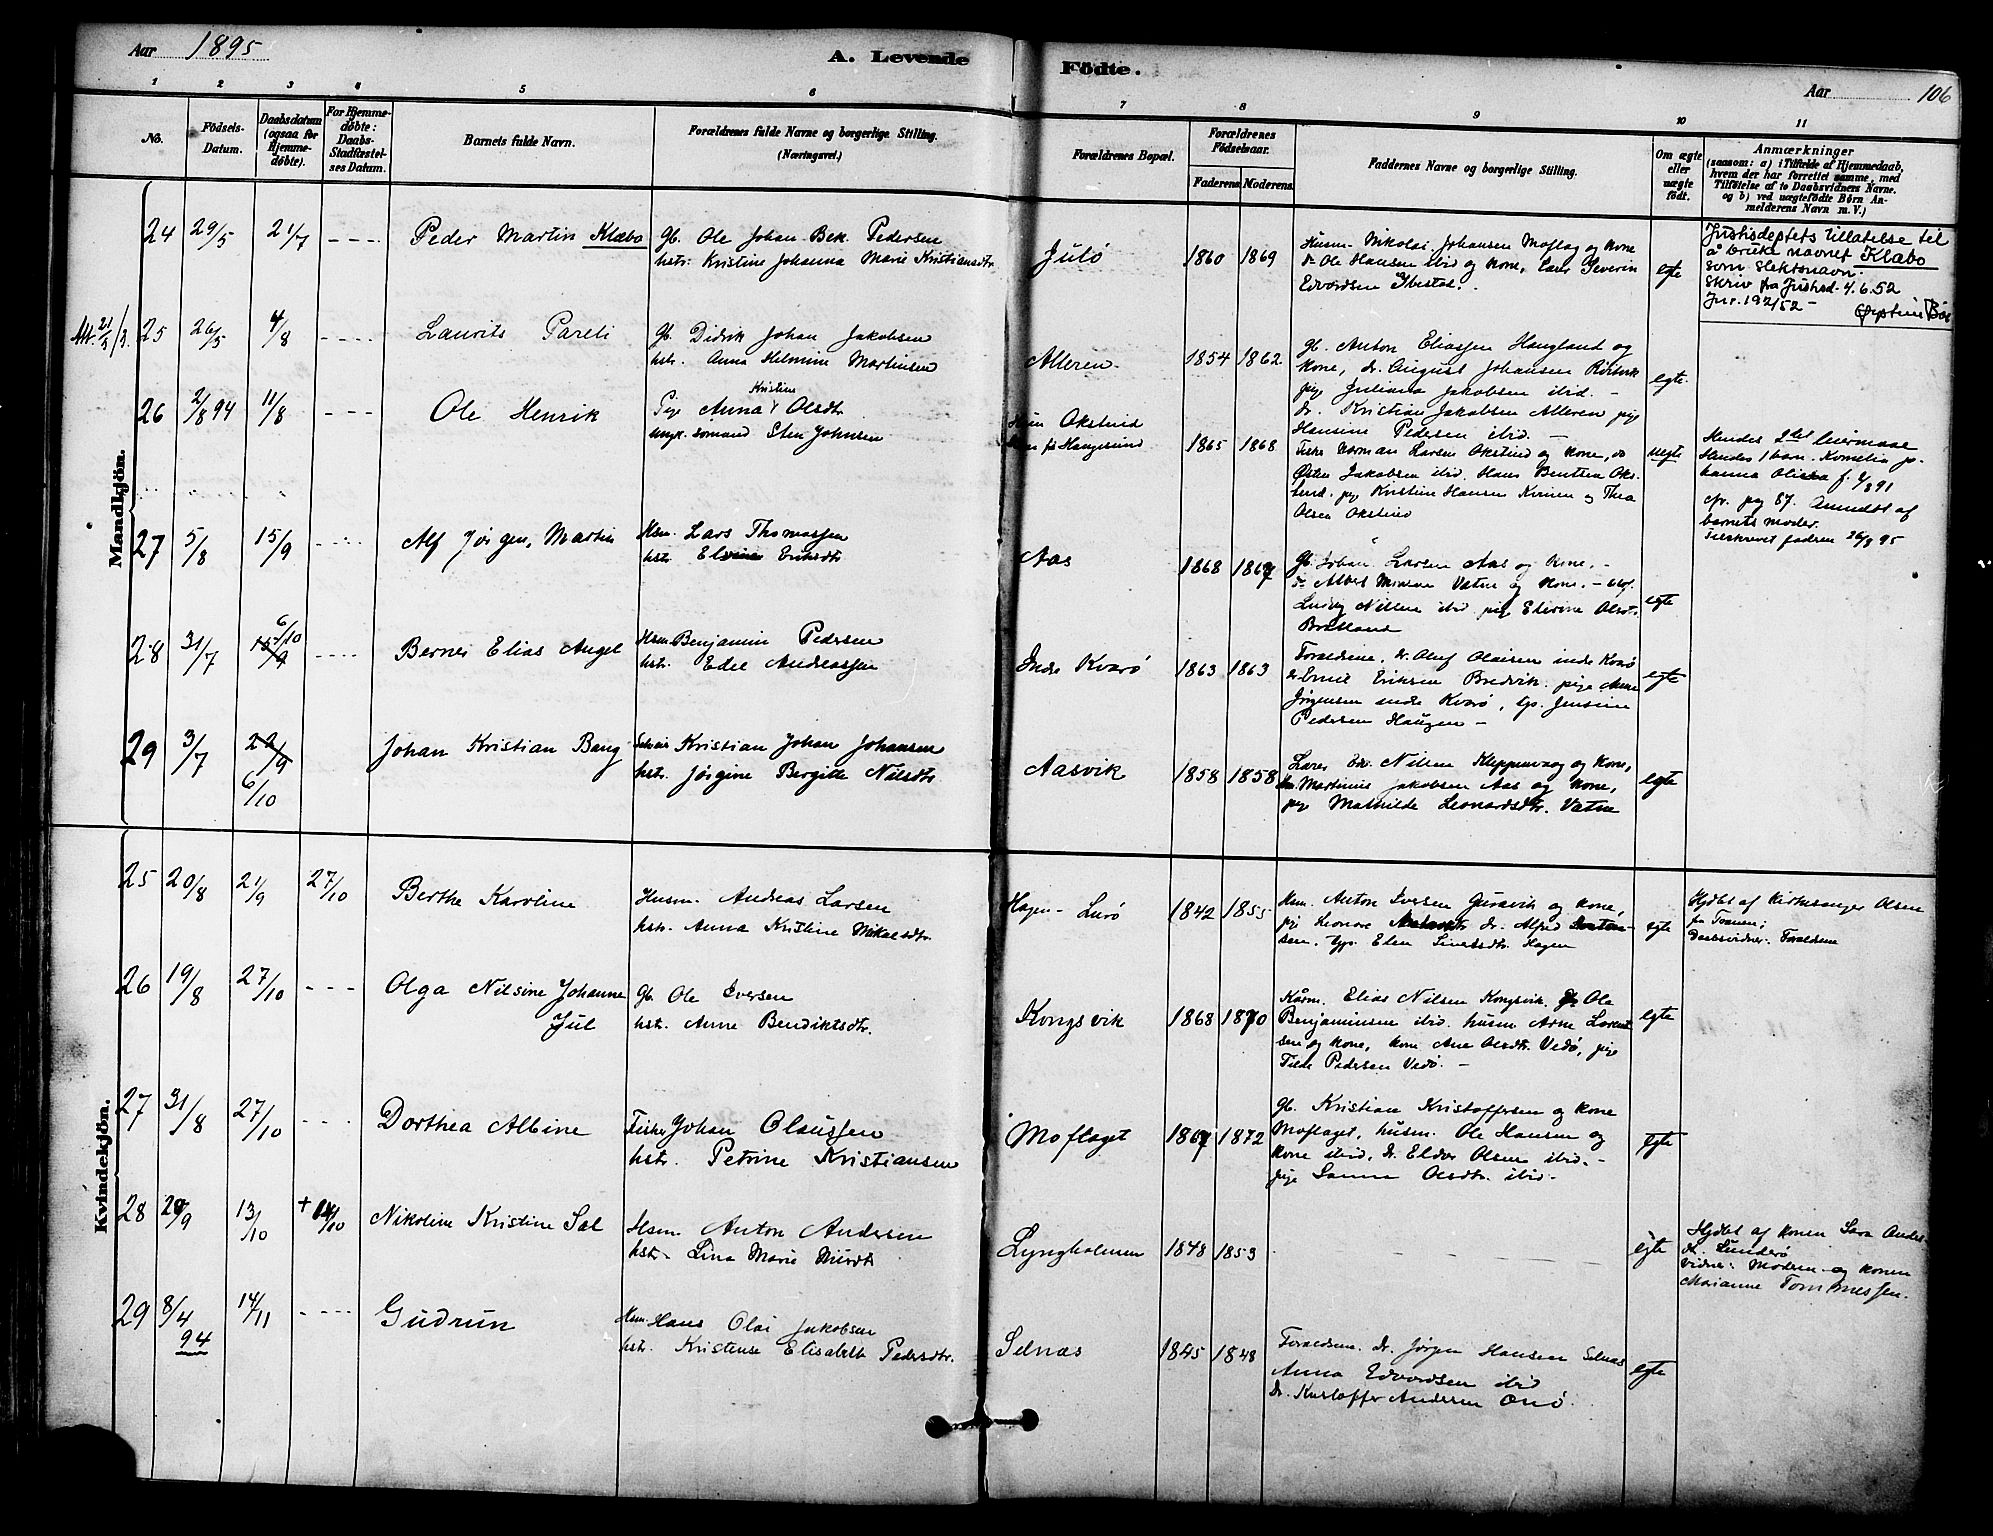 Aar 1895
A. Levende Födte.
Aar 106
1 2 3 4 5 6 7 8 9 10 11
No.
Födsels-Datum.
Daabsdatum (ogsaa for Hjemmedøbte).
For Hjemmedøbte: Daabs-Stadfæstelses Datum.
Barnets fulde Navn.
Forældrenes fulde Navne og borgerlige Stilling.
(Næringsvei.)
Forældrenes Bopæl.
Forældrenes Födselsaar.
Faderens. Moderens.
Faddernes Navne og borgerlige Stilling.
Om ægte eller uægte födt.
Anmærkninger
(saasom: a) i Tilfælde af Hjemmedaab,
hvem der har forrettet samme, med
Tilföielse af to Daabsvidners Navne.
og b) ved uægtefödte Børn An-
melderens Navn m. V.)
Mandkjön.
24 29/5 21/7 - - - Peder Martin Klæbo
Gb. Ole Johan Bek. Pedersen
hstr. Kristine Johanna Marie Kristiansdtr
Julö 1860 1869
Husm. Nikolai Johansen Moflag og kone
dr Ole Hansen ibid og kone, Lars Severin
Edvardsen Ibestad.
egte
Justisdeptets tillatelse til
å bruke navnet Klæbo
som slektsnavn.
Skriv fra Justisd. 4.6.52
Jnr. 192/52 -
25 26/5 4/8 - - - - Laurits Pareli
Gb. Didrik Johan Jakobsen
hstr. Anna Helmine Martinsen
Alleren 1854 1862
Gb. Anton Eliassen Haugland og
kone, dr. August Johansen
pige Juliana Jakobsen ibid. -
dr. Kristian Jakobsen Alleren pige
Hansine Pedersen ibid. -
egte
26 2/8 94 11/8 - - - Ole Henrik
Pige Anna Kristine Olsdtr
ungk. sömand Sten Johnsen
Hun Okstind
Han fra Haugesund
1865 1868
Fisker Norman Larsen Okstind og kone, dr
Østen Jakobsen ibid. Hans Bentsen Oks-
tind. pige Kristine Hansen og Thea
Olsen Okstind
uegte
Hendes 2det leiermaal
Hendes 1 barn Kornelia Jo-
hanna Olissa f. 4/8 91
cfr. pag 87. Anmeldt af
barnets moder.
Tilskrevet fadren 26/8 95
27 5/8 15/9 - - - Alf Jörgen, Martin
Hsm. Lars Thomassen
hstr. Elvine Eriksdtr
Aas 1868 1867
Gb. Johan Larsen Aas og kone. -
Ludvig Nilsen ibid pige Elevine Olsdtr.
Bratland
egte
28 31/7 15/9 6/10 - - - - Bernes Elias Angel
Hsm Benjamin Pedersen
hstr. Edel Andreassen
Indre Kvarö 1863 1863
Foreldrene, dr. Oluf Olaisen indre Kvarö
dr Emil Eriksen Bredvik. pige Anne
Jörgensen indre Kvarö, Gp. Jensine
Pedersen Haugen -
egte
29 3/7 22/9 6/10 Johan Kristian Bang
Selveier Kristian Johan Johansen
hstr. Jörgine Bergitte Nilsdtr
Aasvik 1858 1858
Lærer Nilsen Kleppevaag og kone,
Martinus Jakobsen Aas og kone,
pige Mathilde Leonardsdtr. Vatne
egte
Kvindekjön.
25 20/8 21/9 27/10 Berthe Karoline
Husm. Andreas Larsen
hstr. Anna Kristine Mikalsdtr.
Hagen - Lurö 1842 1855
Hsm. Anton Iversen Guravik og kone,
pige Leonore dr. Alfred
sen. Gp. Elen Sivertsdtr. Hagen
egte
Hjdbt af Kirkesanger Olsen
fra Trænen;
Daabsvidner: Foreldrene
26 19/8 27/10 - - - Olga Nilsine Johanne
Jul
Gb. Ole Iversen
hstr. Anne Bendiktsdtr.
Kongsvik 1868 1870
Kårm. Elias Nilsen Kongsvik. Gb Ole
Benjaminsen ibid. husm Arne Lorent
sen og kone, kone Ane Olsdtr. Vedö, pige
Tilde Pedersen Vedö. -
egte
27 31/8 27/10 - - - Dorthea Albine
Fisker Johan Olaussen
hstr. Petrine Kristiansen
Moflaget 1867 1872
Gb. Kristian Kristoffersen og kone
Moflaget, husm. Ole Hansen og
kone ibid, dr. Eldor Olsen ibid. -
pige Sanna Olsdtr. ibid -
egte
28 20/9 13/10 + 14/10 Nikoline Kristine Sal
Hsm. Anton Andersen
hstr. Lina Marie
Lyngholmen 1848 1853
egte
Hjdbt af konen Sara Anders
dtr. Sunderö
vidner: Moderen og konen
Marianne Tommessen.
29 8/4 94 14/11 - - - - Gudrun
Hsm Hans Olai Jakobsen
hstr. Kristense Elisabeth Pedersdtr.
Selnæs 1845 1848
Foreldrene. dr. Jörgen Hansen Selnæs
Anna Edvardsen ibid
dr. Kristoffer Andersen Onö.
egte